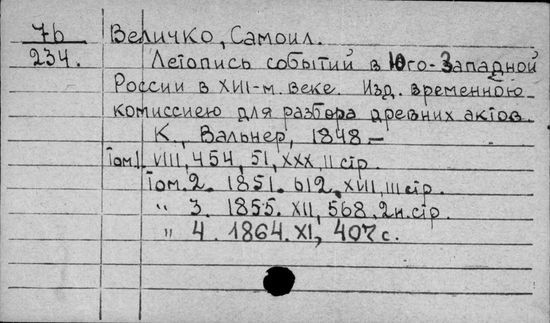 7b Величко, Самоил.
234. Летопись событий в Юго-Западной
России в XVII-м. веке. Изд. временною
комиссиею для разбора древних актов.
К., Вальнер, 1848.-
Том.1. VIII, 454, 51, XXX, II стр.
Том. 2. 1851. 612, XVII, III стр.
" 3. 1855. XII, 568, 2н. стр.
" 4. 1864. XI, 407 с.